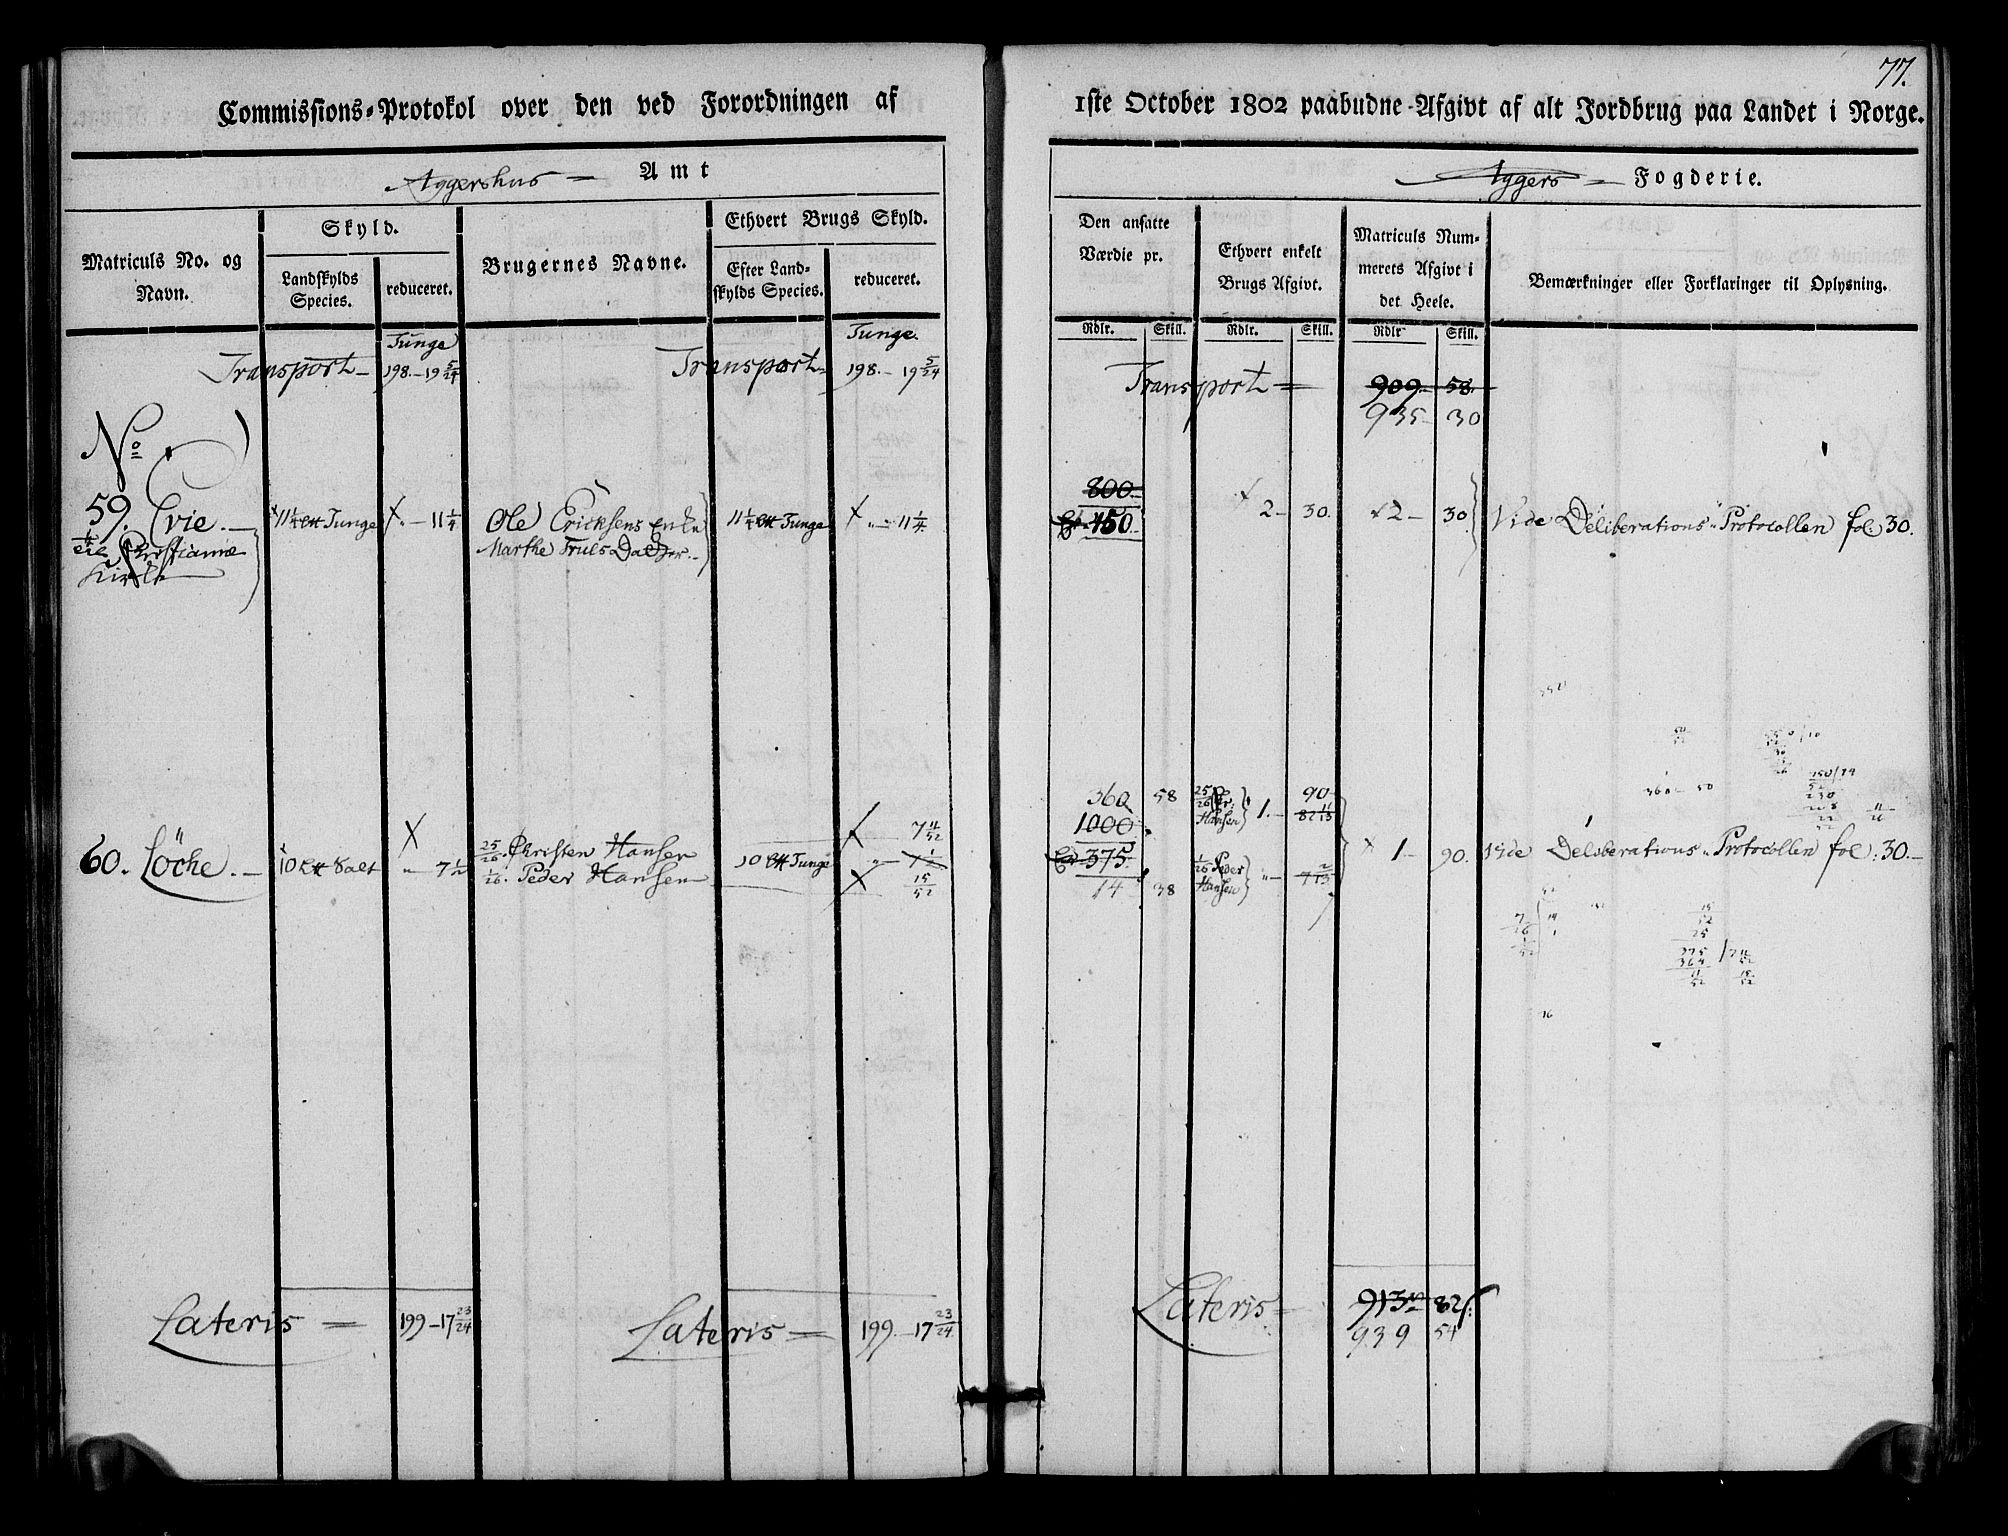 77.
Commissions-Protokol over den ved Forordningen af 1ste October 1802 paabudne Afgivt af alt Jordbrug paa Landet i Norge.
Aggershus = Amt
Aggers = Fogderie.
Matriculs No. og Navn.
Skyld.
Landskylds Species.
reduceret.
Brugernes Navne.
Ethvert Brugs Skyld.
Efter Landskylds Species.
reduceret.
Den ansatte Værdie pr.
Rdlr. Skill.
Ethvert enkelt Brugs Afgivt.
Rdlr. Skill.
Matriculs Nummerets Afgivt i det Heele.
Rdlr Skill.
Bemærkninger eller Forklaringer til Oplysning.
Tunge Tunge.
Transport – 198. – 19 5/24 Transport = 198. – 19 5/24 Transport = 909. 58.
935 30
No
800
59. Evie. – 11 1/4 Tunge X „ – 11 1/4 Ole Ericksens Enke 11 1/4 Tunge X „ – 11 1/4 450 2 – 30. 2 – 30 Vide Deliberations Protocollen fol: 30.
Christianiæ Marthe Truls Datter. –
Kirke
360 58 25/26 Chr: Hansen 1. – 90
82 11/13
1000
7 11/52
60. Löche. – 10 Salt „ 7 1/2 25/26. Christen Hansen 10 Tunge „ – 7 1/2 375. 1 – 90. Vide Deliberations Protocollen fol: 30. –
1/26. Peder Hansen 15/52 14 38 1/26 Peder Hansen „ – 7 2/13
Lateris = 199 – 17 23/24 Lateris = 199. – 17 23/24 Lateris = 913 82
939 54